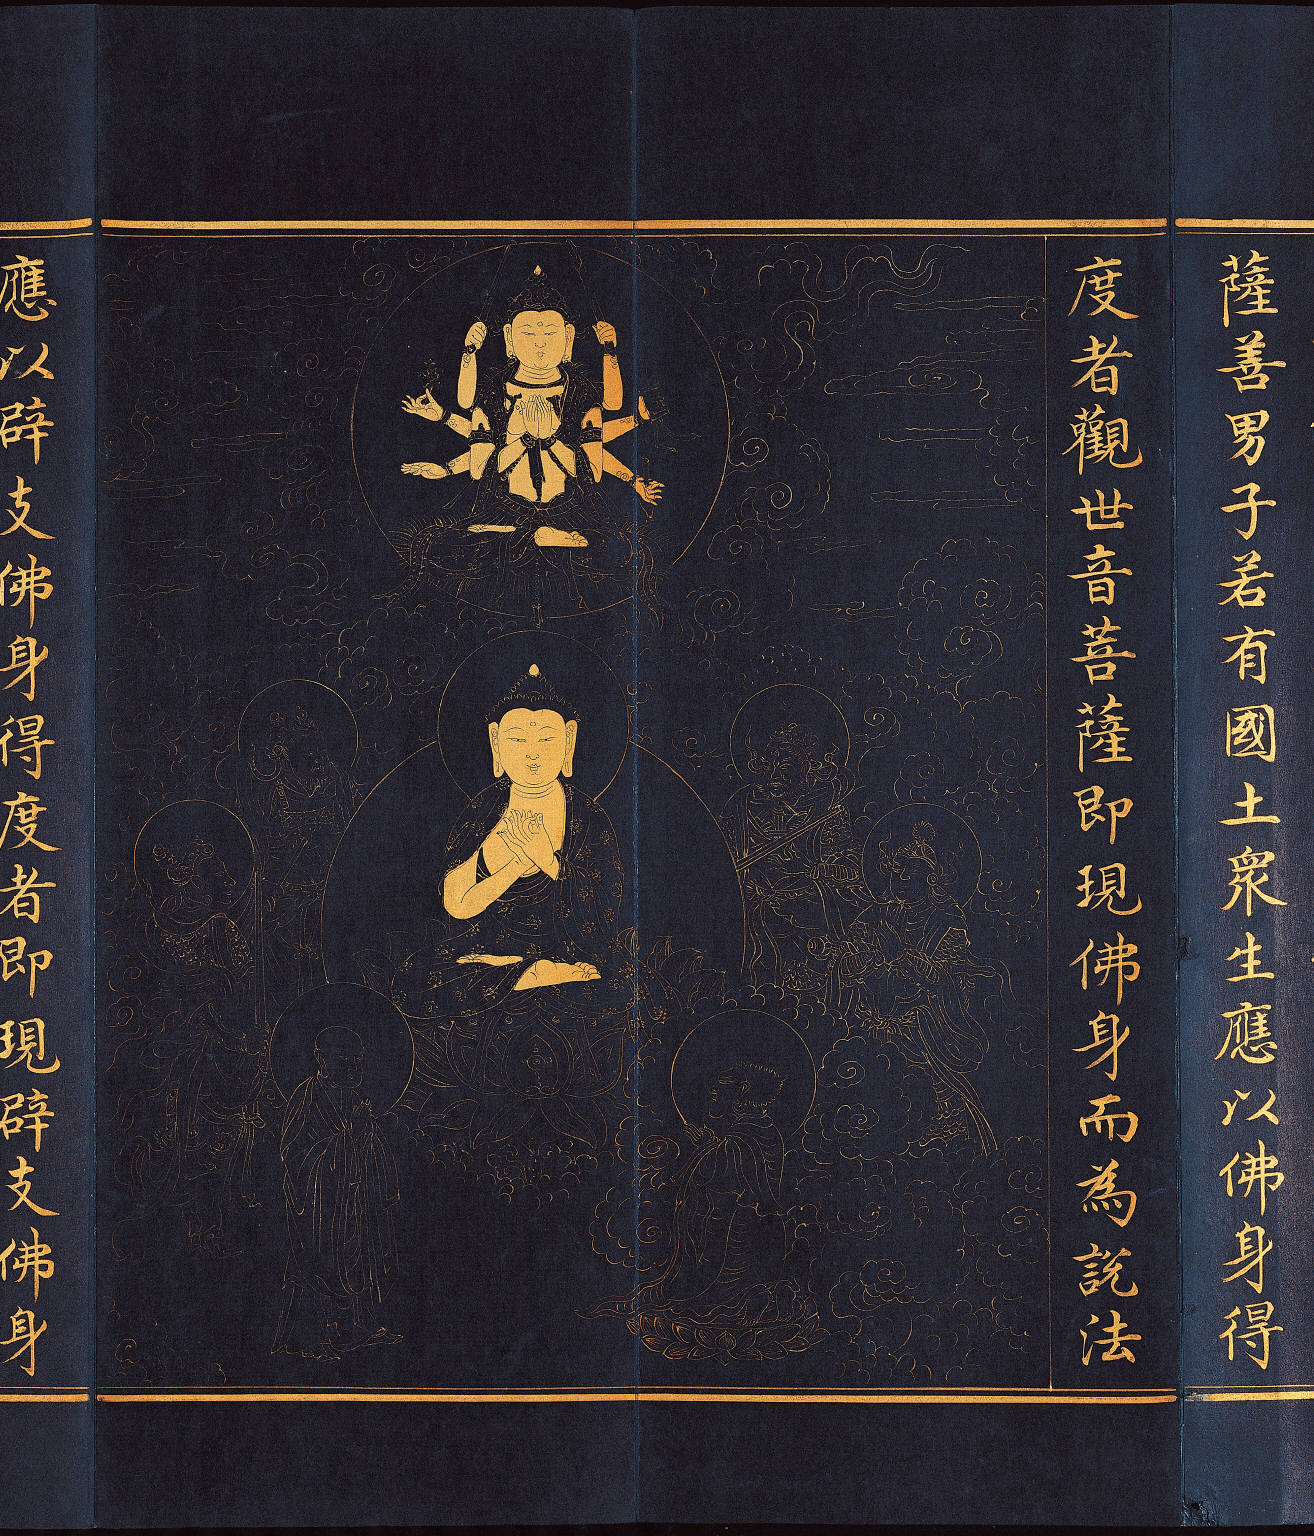 薩善男子若有國土眾生應以佛身得
度者觀世音菩薩即現佛身而為說法
應以辟支佛身得度者即現辟支佛身